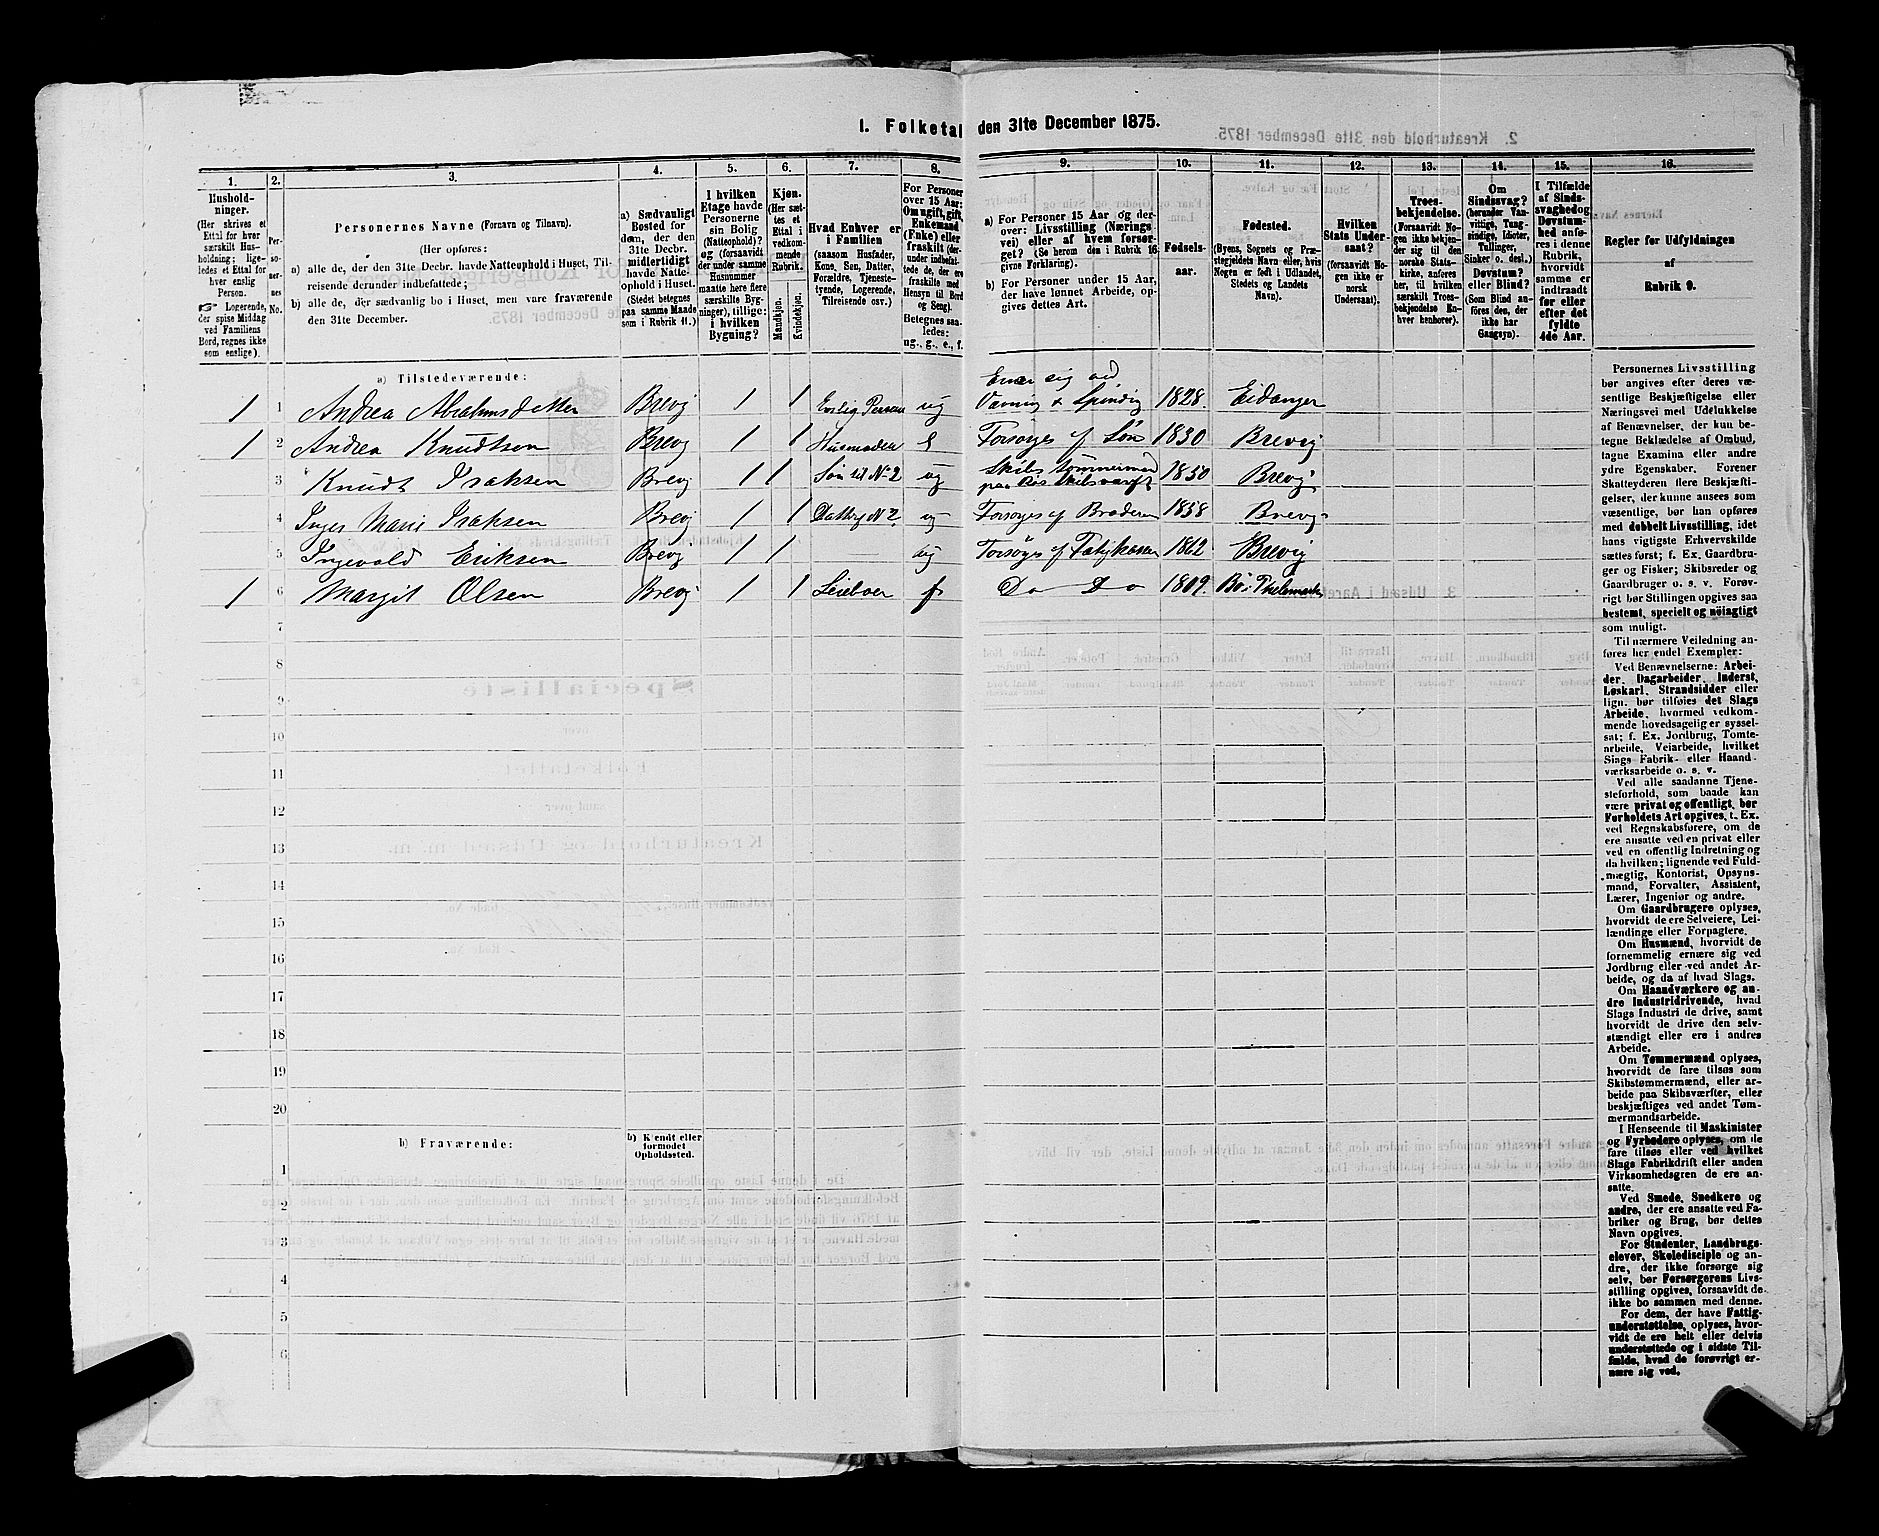 1. Folketal den 31te December 1875.
1.
Hushold-
ninger.
(Her skrives et
Ettal for hver
særskilt Hus-
holdning; lige-
ledes et Ettal for
hver enslig
Person.
Logerende,
der spise Middag
ved Familiens
Bord, regnes ikke
som enslige).
2.
Per-
so-
ner-
nes
No.
3.
Personernes Navne (Fornavn og Tilnavn).
(Her opføres:
a) alle de, der den 31te Decbr. havde Natteophold i Huset, Til-
reisende derunder indbefattede;
b) alle de, der sædvanlig bo i Huset, men vare fraværende
den 31te December.
4.
a) Sædvanligt
Bosted for
dem, der den
31te Decbr.
midlertidigt
havde Natte-
ophold i Huset.
(Stedet betegnes
paa samme Maade
som i Rubrik 11.)
5.
I hvilken
Etage havde
Personerne
sin Bolig
(Natteophold)?
og (forsaavidt
der under samme
Husnummer
maatte høre flere
særskilte Byg-
ninger), tillige:
i hvilken
Bygning?
6.
Kjøn.
(Her sæt-
tes et
Ettal i
vedkom-
mende
Rubrik.)
Mandkjøn.
Kvindekjøn.
7.
Hvad Enhver er
i Familien
(saasom Husfader,
Kone, Søn, Datter,
Forældre, Tjeneste-
tyende, Logerende,
Tilreisende osv.)
8.
For Personer
over 15 Aar:
Om ugift, gift,
Enkemand
(Enke) eller
fraskilt (der-
under indbefat-
tede de, der ere
fraskilte med
Hensyn til Bord
og Seng).
Betegnes saa-
ledes:
ug., g., e., f.
9.
a) For Personer 15 Aar og der-
over: Livsstilling (Nærings-
vei) eller af hvem forsør-
get? (Se herom den i Rubrik 16
givne Forklaring).
b) For Personer under 15 Aar,
der have lønnet Arbeide, op-
gives dettes Art.
10.
Fødsels-
aar.
11.
Fødested.
(Byens, Sognets og Præ-
stegjeldets Navn eller, hvis
Nogen er født i Udlandet,
Stedets og Landets
Navn).
12.
Hvilken
Stats Under-
saat?
(forsaavidt No-
gen ikke er
norsk
Undersaat).
13.
Troes-
bekjendelse.
(Forsaavidt No-
gen ikke bekjen-
der sig til den
norske Stats-
kirke, anføres
her, til hvilken
særskilt Troes-
bekjendelse En-
hver henhører).
14.
Om
Sindssvag?
(herunder Van-
vittige, Tung-
sindige, Idioter,
Tullinger,
Sinker o. desl.)
Døvstum?
eller Blind?
(Som Blind an-
føres den, der
ikke har
Gangsyn).
15.
I Tilfælde
af Sinds-
svaghed og
Døvstum-
hed anfø-
res i denne
Rubrik,
hvorvidt
samme er
indtraadt
før eller
efter det
fyldte
4de Aar.
16.
Regler for Udfyldningen
af
Rubrik 9.
a) Tilstedeværende:
1 1 Andrea Abrahmsdatter Brevig 1 1 Enslig Person ug Ernær sig ved
Vævning & Spinding 1828. Eidanger
1 2 Andrea Knudtsen Brevig 1 1 Husmoder e Forsørges af Søn 1830 Brevig
3 Knudt Isaksen Brevig 1 1 Søn til No 2 ug Skibs tømmermand
paa Skibsværft 1850 Brevig
4 Inger Marie Isaksen Brevig 1 1 Datter No 2 ug Forsørges af Broderen 1858 Brevig
5 Ingevald Eriksen Brevig 1 1 ug Forsørges af Fatigkassen 1862 Brevig
1 6 Margit Olsen Brevig 1 1 Leieboer f Do Do 1809. Bö i Thelemarken
7
8
9
10
11
12
13
14
15
16
17
18
19
20
b) Fraværende:
b) Kjendt eller
formodet
Opholdssted.
1
2
3
4
5
6
Personernes Livsstilling
bør angives efter deres væ-
sentlige Beskjæftigelse eller
Næringsvei med Udelukkelse
af Benævnelser, der kun be-
tegne Beklædelse af Ombud,
tagne Examina eller andre
ydre Egenskaber. Forener
Skatteyderen flere Beskjæfti-
gelser, der kunne ansees som
væsentlige, bør han opføres
med dobbelt Livsstilling, idet
hans vigtigste Erhvervskilde
sættes først; f. Ex. Gaardbru-
ger og Fisker; Skibsreder og
Gaardbruger o. s. v. Forøv-
rigt bør Stillingen opgives saa
bestemt, specielt og nøiagtigt
som muligt.
Til nærmere Veiledning an-
føres her endel Exempler:
Ved Benævnelserne: Arbei-
der, Dagarbeider, Inderst,
Løskarl, Strandsidder eller
lign. bør tilføies det Slags
Arbeide, hvormed vedkom-
mende hovedsagelig er syssel-
sat; f. Ex. Jordbrug, Tomte-
arbeide, Veiarbeide, hvilket
Slags Fabrik- eller Haand-
værksarbeide o. s. v.
Ved alle saadanne Tjene-
steforhold, som baade kan
være privat og offentligt, bør
Forholdets Art opgives, t. Ex.
ved Regnskabsførere, om de
ere ansatte ved en privat eller
ved en offentlig Indretning og
da hvilken; lignende ved Fuld-
mægtig, Kontorist, Opsyns-
mand, Forvalter, Assistent,
Lærer, Ingeniør og andre.
Om Gaardbrugere oplyses,
hvorvidt de ere Selveiere, Lei-
lændinge eller Forpagtere.
Om Husmænd, hvorvidt de
fornemmelig ernære sig ved
Jordbrug eller ved andet Ar-
beide, og da af hvad Slags.
Om Haandværkere og an-
dre Industridrivende, hvad
Slags Industri de drive, samt
hvorvidt de drive den selv-
stændigt eller ere i andres
Arbeide.
Om Tømmermænd oplyses,
hvorvidt de fare tilsøs som
Skibstømmermænd, eller ar-
beide paa Skibsværfter, eller
beskjæftiges ved andet Tøm-
mermandsarbeide.
I Henseende til Maskinister
og Fyrbødere oplyses, om de
fare tilsøs eller ved hvilket
Slags Fabrikdrift eller anden
Virksomhedsgren de ere an-
satte.
Ved Smede, Snedkere og
andre, der ere ansatte ved Fa-
briker og Brug, bør dettes
Navn opgives.
For Studenter, Landbrugs-
elever, Skoledisciple og an-
dre, der ikke forsørge sig
selv, bør Forsørgerens Livs-
stilling opgives, forsaavidt de
ikke bo sammen med denne.
For dem, der have Fattig-
understøttelse, oplyses, hvor-
vidt de ere helt eller delvis
understøttede og i sidste Til-
fælde, hvad de forøvrigt er-
nære sig ved.